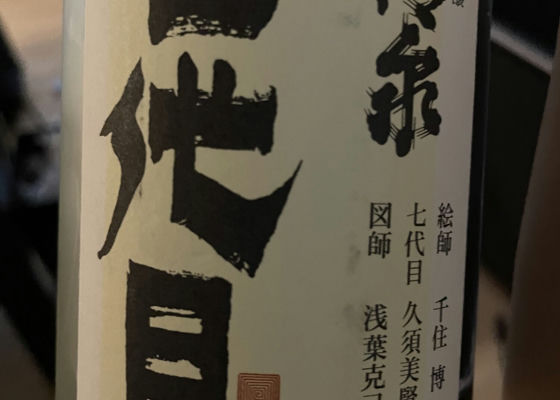 泉
絵師 千住 博
七代目 久須美賢
図師 浅葉克
代目